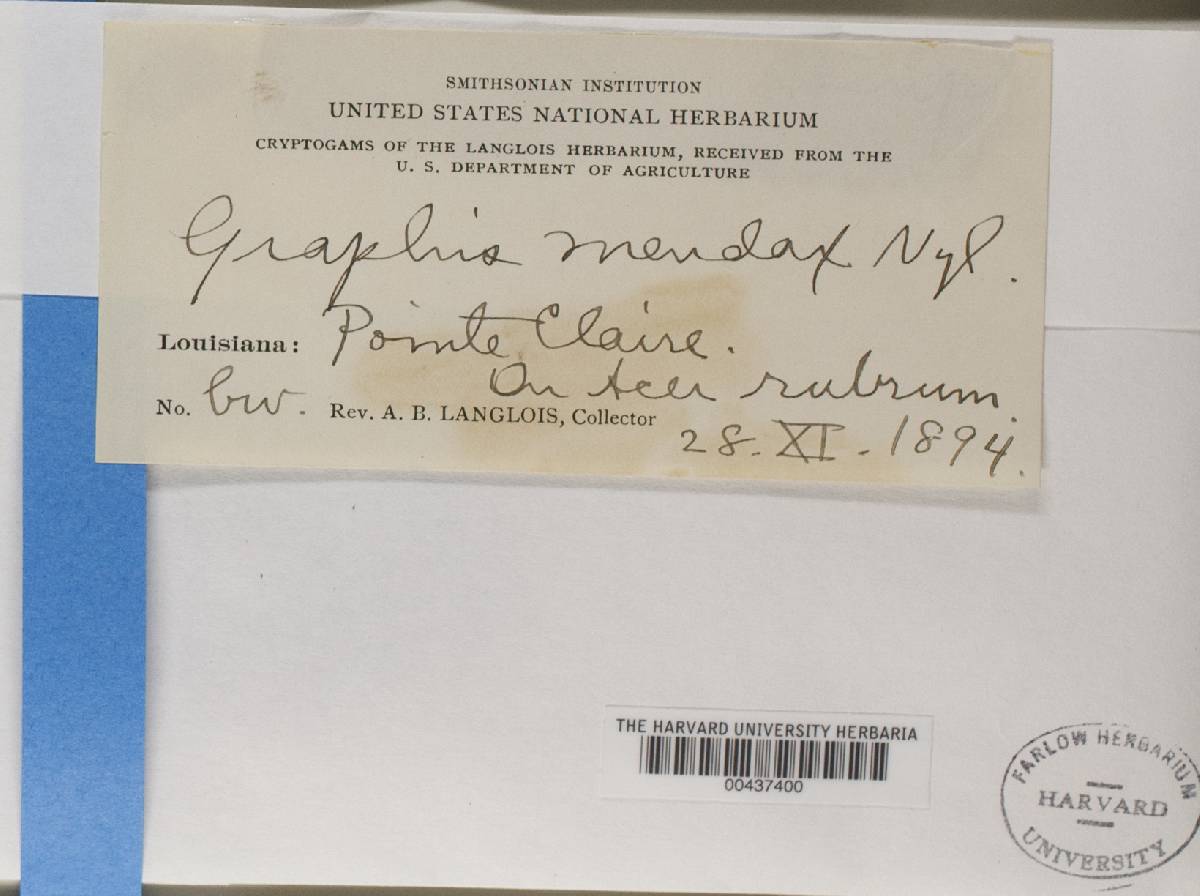 SMITHSONIAN INSTITUTION
UNITED STATES NATIONAL HERBARIUM
CRYPTOGAMS OF THE LANGLOIS HERBARIUM, RECEIVED FROM THE
U. S. DEPARTMENT OF AGRICULTURE
Graphis mendax Nyl.
Louisiana: Pointe Claire.
On Acer rubrum.
No. bw. Rev. A. B. LANGLOIS, Collector
28. XI. 1894.
THE HARVARD UNIVERSITY HERBARIA
00437400
FARLOW HERBARIUM
HARVARD
UNIVERSITY